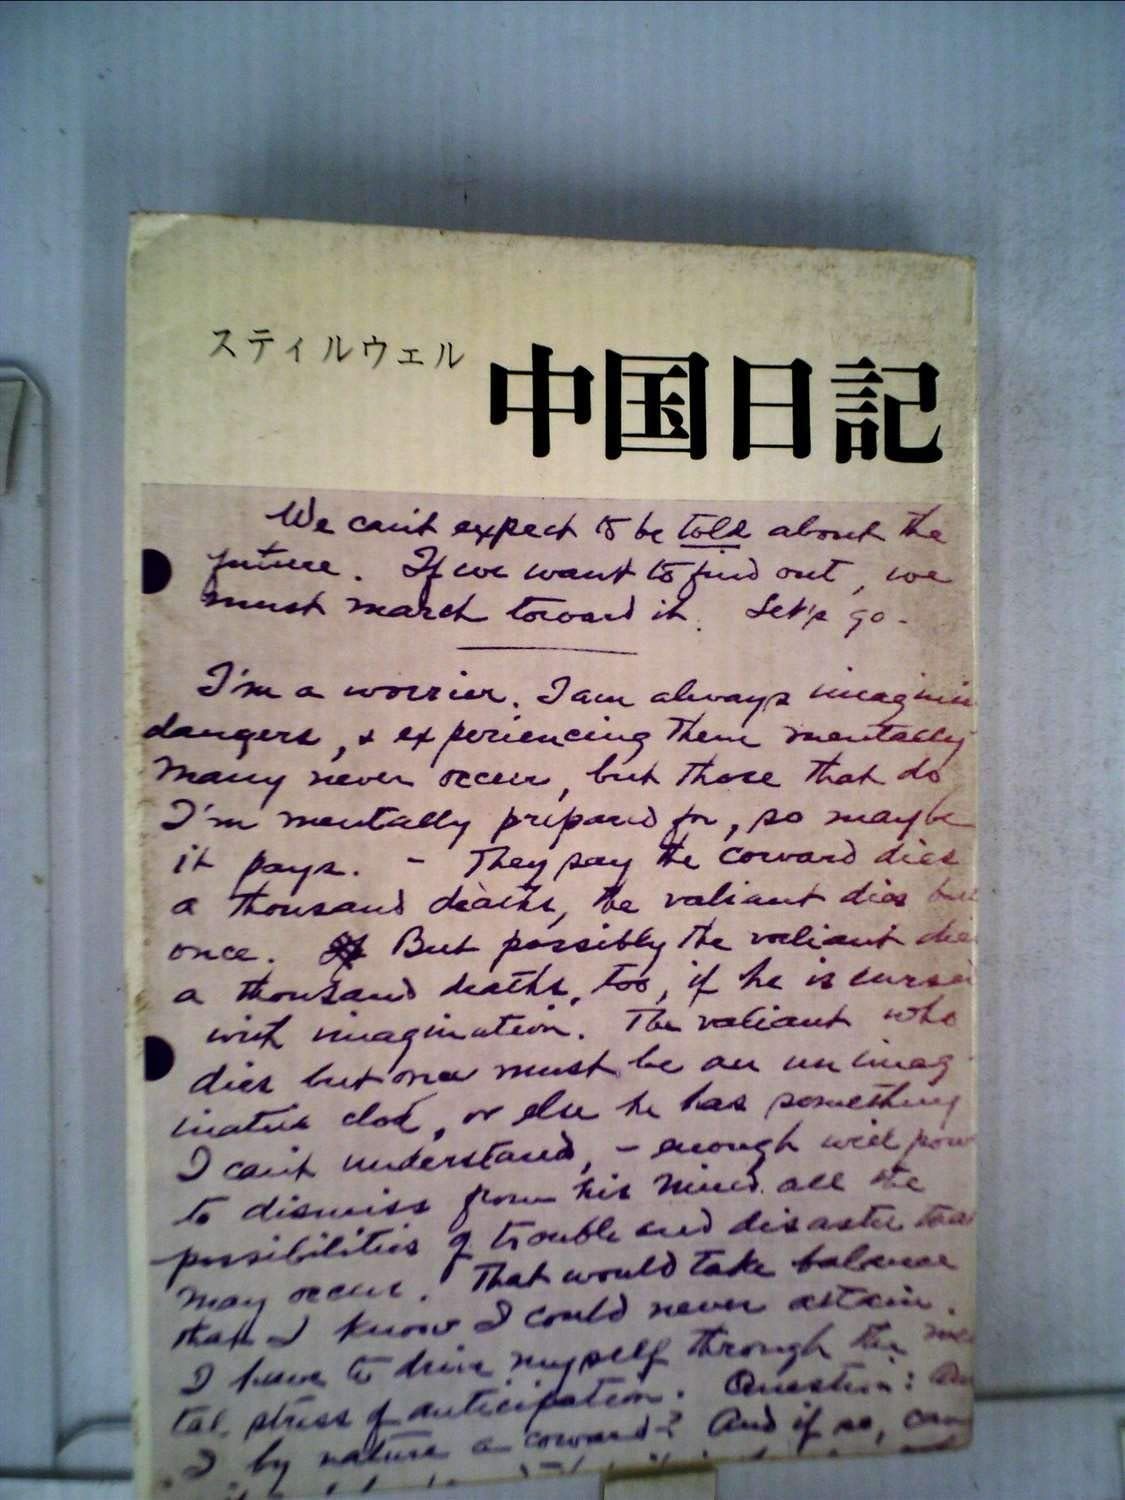 スティルウェル
中国日記
We can't expect to be told about the
future. If we want to find out, we
must march toward it. Let's go.
I'm a worrier. I am always imagin
dangers, & experiencing them mentally
Many never occur, but those that do
I'm mentally prepared for, so maybe
it pays. - They say the coward dies
a thousand deaths, the valiant dies but
once. But possibly the valiant die
a thousand deaths, too, if he is curse
with imagination. The valiant who
dies but once must be an unimag-
inative clod, or else he has something
I can't understand, - enough will pow
to dismiss from his mind all the
possibilities of trouble and disaster that
may occur. That would take balance
that I know I could never attain.
I have to drive myself through the men
tal stress of anticipation. Question: Am
I by nature a coward? And if so, can